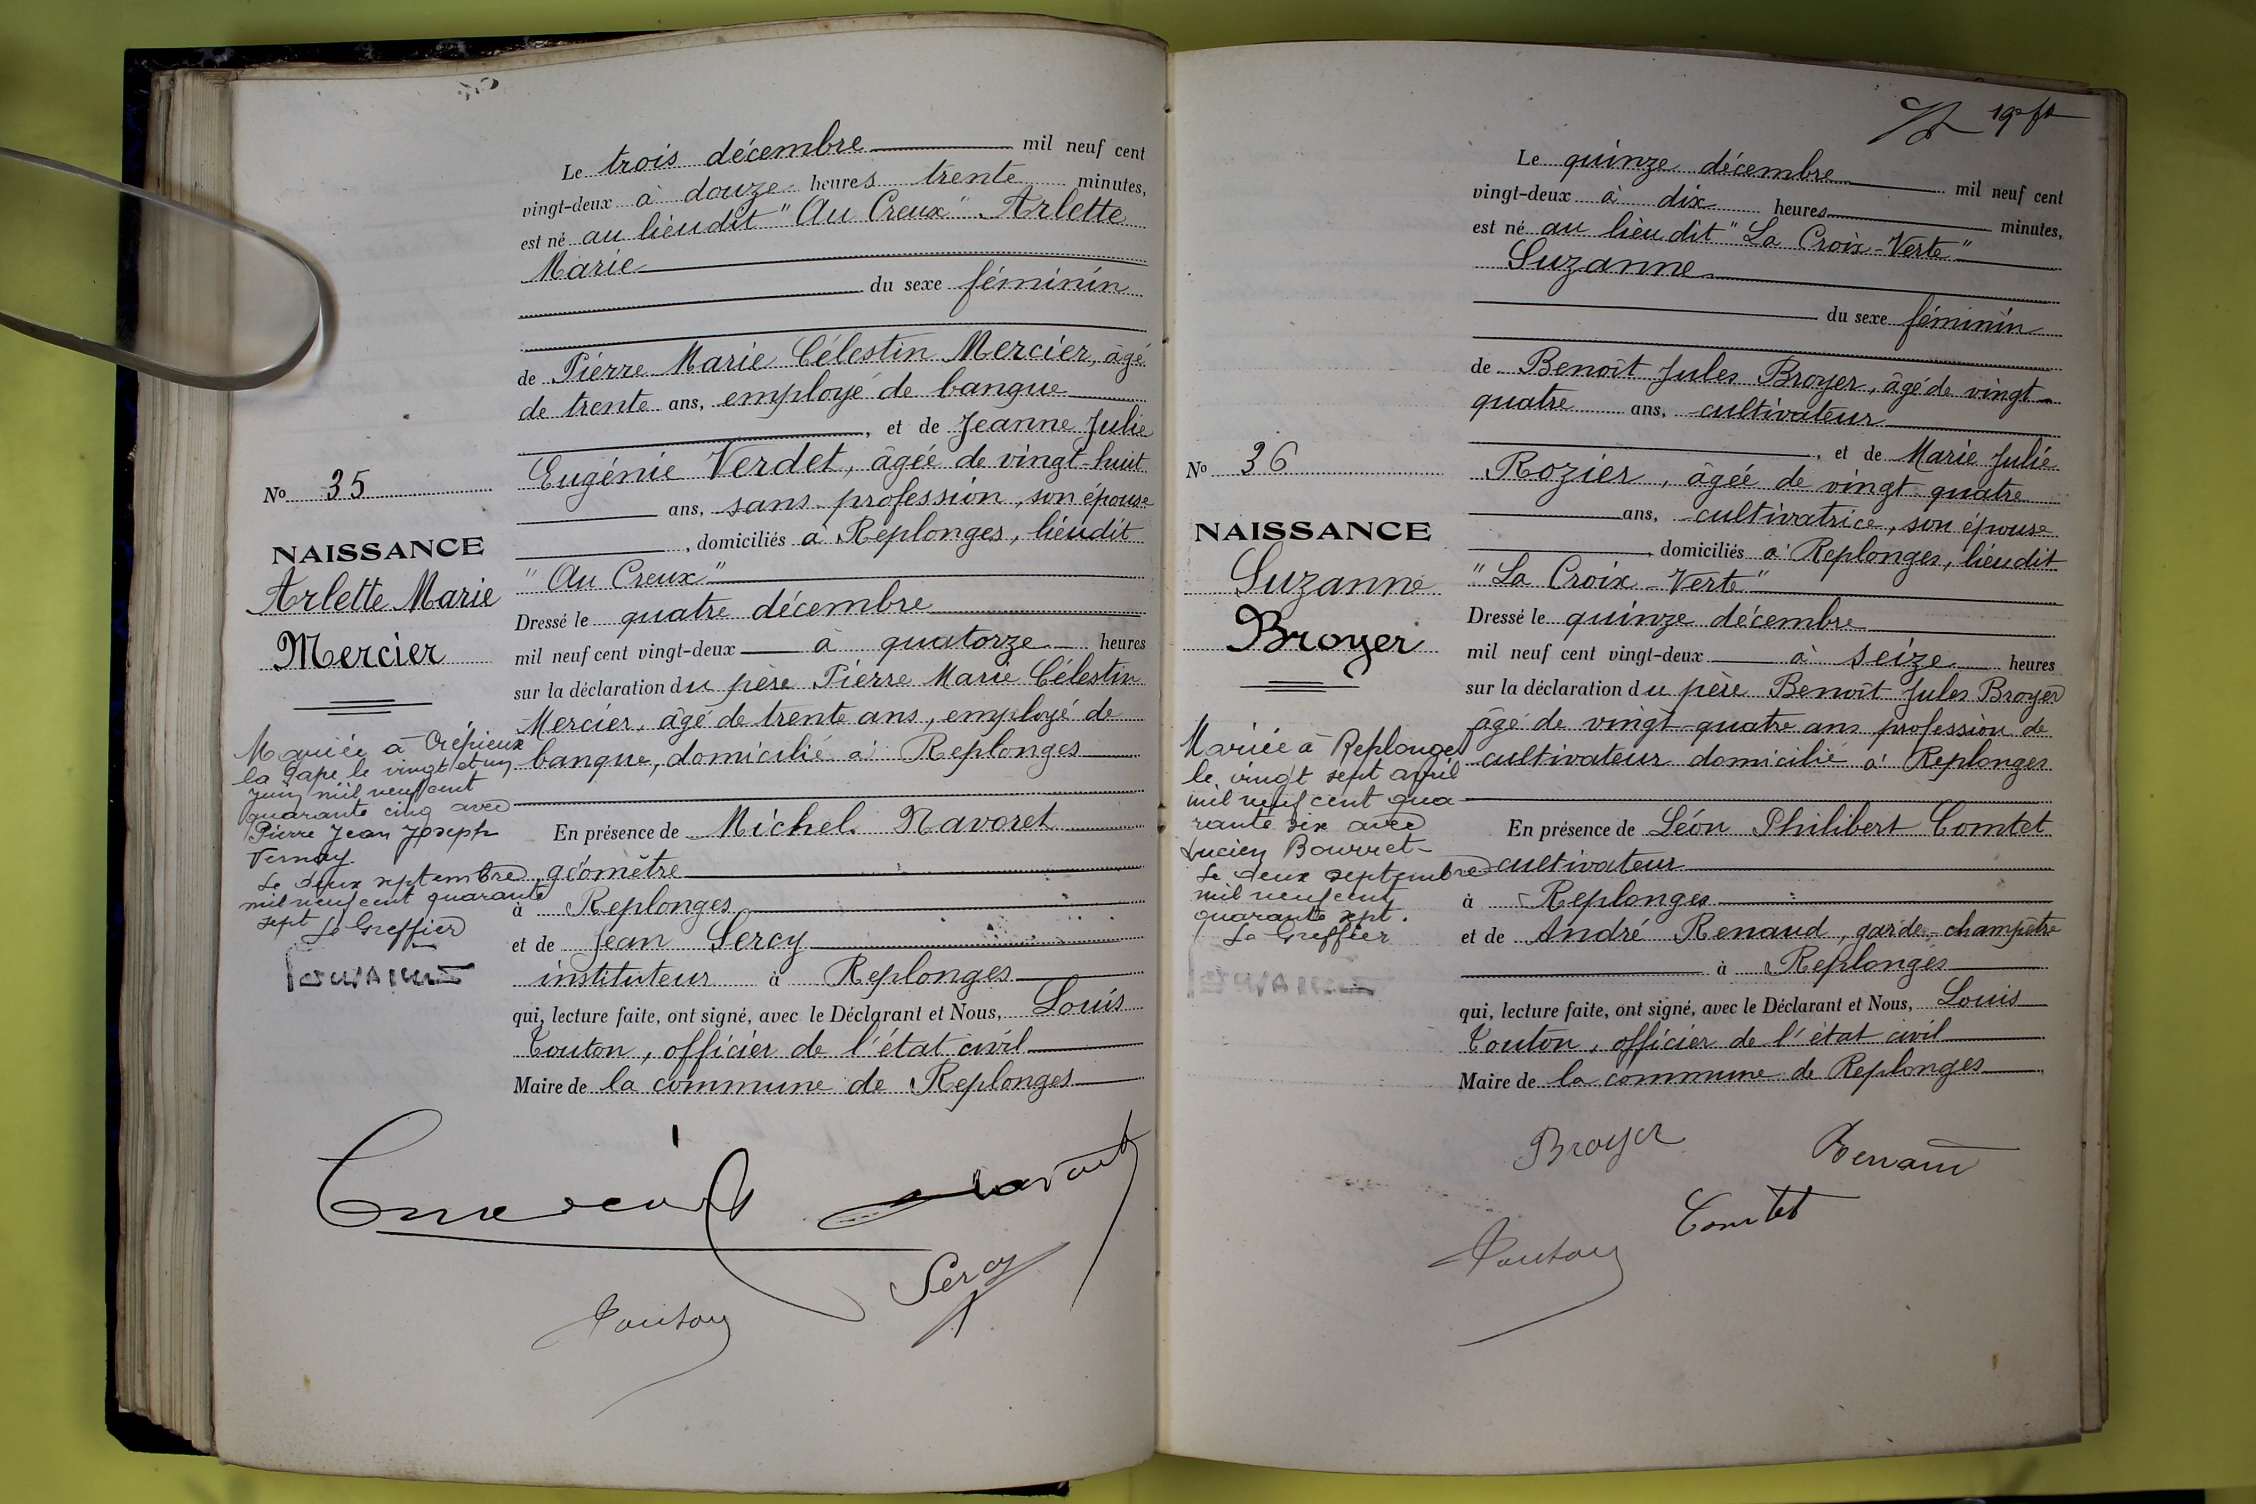 Le trois décembre mil neuf cent
vingt-deux à douze heures trente minutes,
est né au lieudit "Au Creux" Arlette
Marie
du sexe féminin
de Pierre Marie Célestin Mercier, âgé
de trente ans, employé de banque
, et de Jeanne Julie
Eugénie Verdet, âgée de vingt-huit
ans, sans profession, son épouse
, domiciliés à Replonges, lieudit
"Au Creux"
Dressé le quatre décembre
mil neuf cent vingt-deux à quatorze heures
sur la déclaration du père Pierre Marie Célestin
Mercier, âgé de trente ans, employé de
banque, domicilié à Replonges
En présence de Michel Navoret
géomètre
à Replonges
et de Jean Sercy
instituteur à Replonges
qui, lecture faite, ont signé, avec le Déclarant et Nous, Louis
Touton, officier de l'état civil
Maire de la commune de Replonges
No 35
NAISSANCE
Arlette Marie
Mercier
Mariée à Crépieux
la Pape le vingt et un
juin mil neuf cent
quarante cinq avec
Pierre Jean Joseph
Vernay.
Le deux septembre
mil neuf cent quarante
sept Le Greffier
Mercier
Navoret
Sercy
Touton
19e ft
Le quinze décembre mil neuf cent
vingt-deux à dix heures minutes,
est né au lieu dit "La Croix-Verte"
Suzanne
du sexe féminin
de Benoît Jules Broyer, âgé de vingt-
quatre ans, cultivateur
, et de Marie Julie
Rozier, âgée de vingt quatre
ans, cultivatrice, son épouse
, domiciliés à Replonges, lieudit
"La Croix-Verte"
Dressé le quinze décembre
mil neuf cent vingt-deux à seize heures
sur la déclaration du père Benoît Jules Broyer
âgé de vingt-quatre ans profession de
cultivateur domicilié à Replonges
En présence de Léon Philibert Comtet
cultivateur
à Replonges
et de André Renaud, garde-champêtre
à Replonges
qui, lecture faite, ont signé, avec le Déclarant et Nous, Louis
Touton, officier de l'état civil
Maire de la commune de Replonges
No 36
NAISSANCE
Suzanne
Broyer
Mariée à Replonges
le vingt sept avril
mil neuf cent qua
rante six avec
Lucien Bourret
Le deux septembre
mil neuf cent
quarante sept.
Le Greffier
Broyer
Renaud
Comtet
Touton